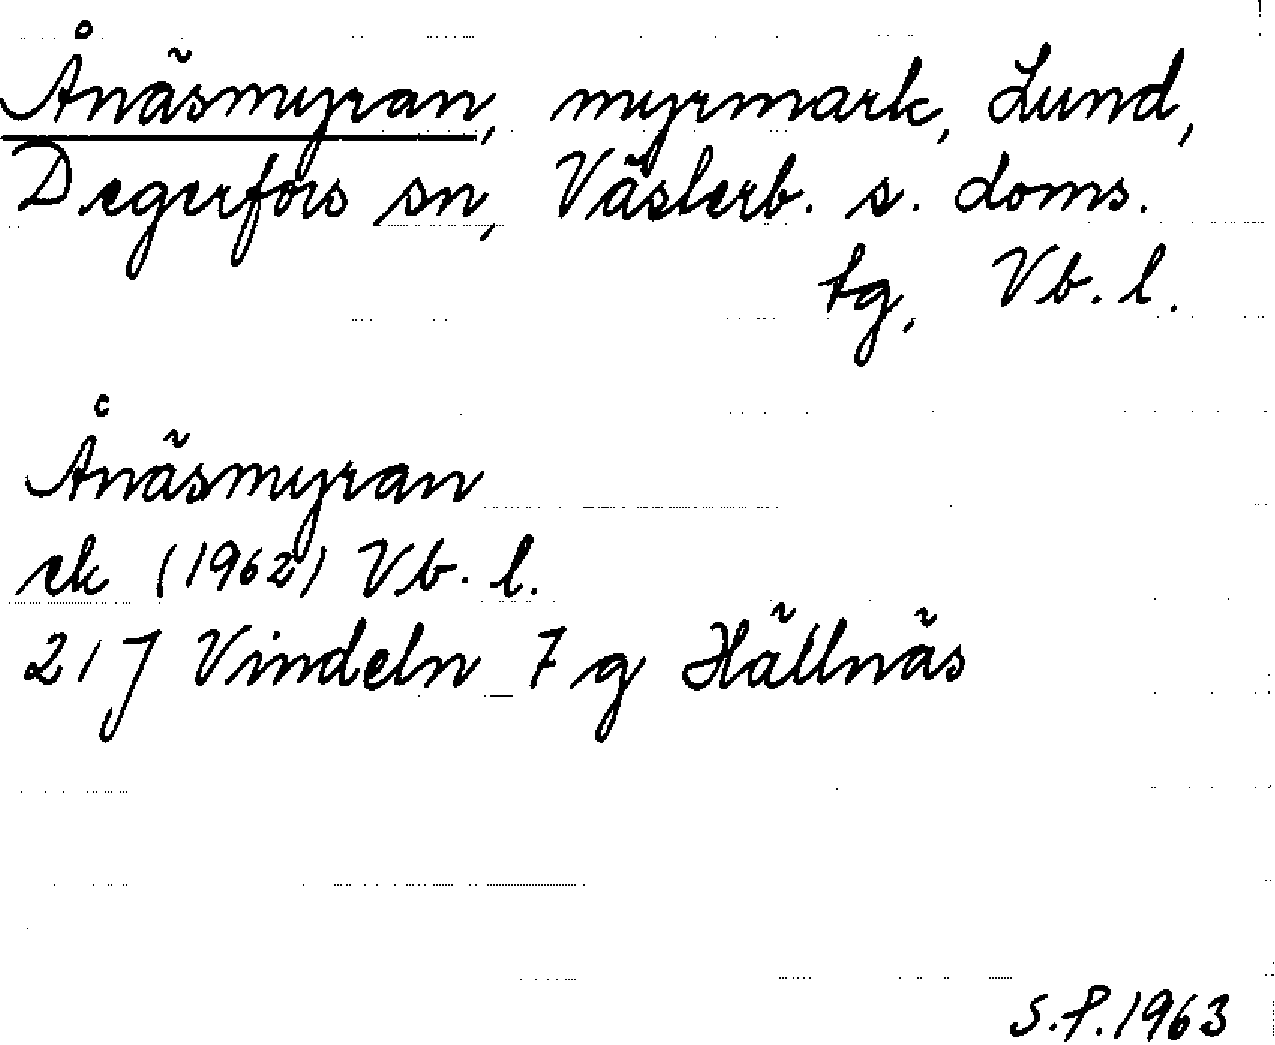 Ånäsmyran, myrmark, Lund,
Degerfors sn, Västerb. s. doms.
tg, Vb. l.
Ånäsmyran
ek (1962) Vb. l.
21J Vindeln 7 g Hällnäs
S.P. 1963